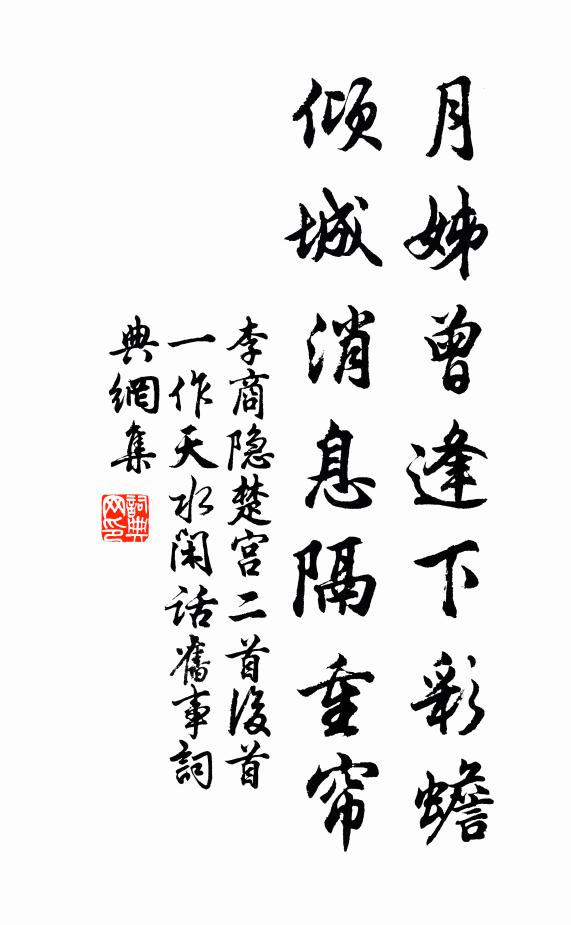 月姊曾逢下彩蟾
倾城消息隔重帘
李商隐楚宫二首後首
一作天水闲话舊事詞
典網集
詞典
网印